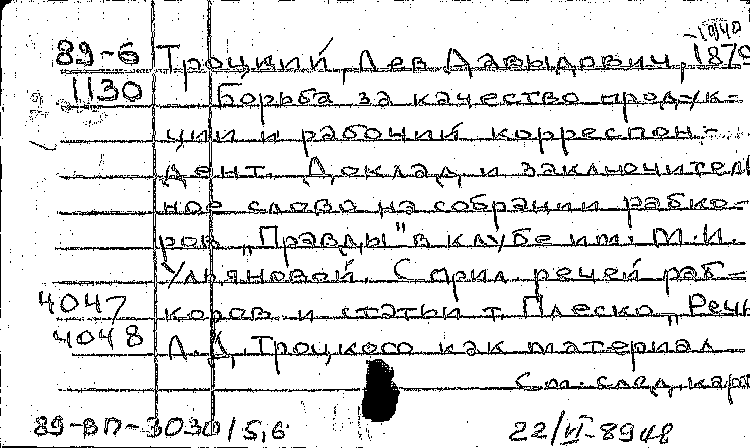 -1940
89-6 Троцкий, Лев Давыдович, 1879
1130 Борьба за качество продук-
ции и рабочий корреспон-
дент. Доклад и заключитель
ное слово на собрании рабко-
ров „Правды" в клубе им. М.И.
Ульяновой. С прил. речей раб-
4047 коров и статьи т. Плеско „Речь
4048 Л.Д. Троцкого как материал
См. след. карт
89-ВП-3030/5,6 22/VI-8948